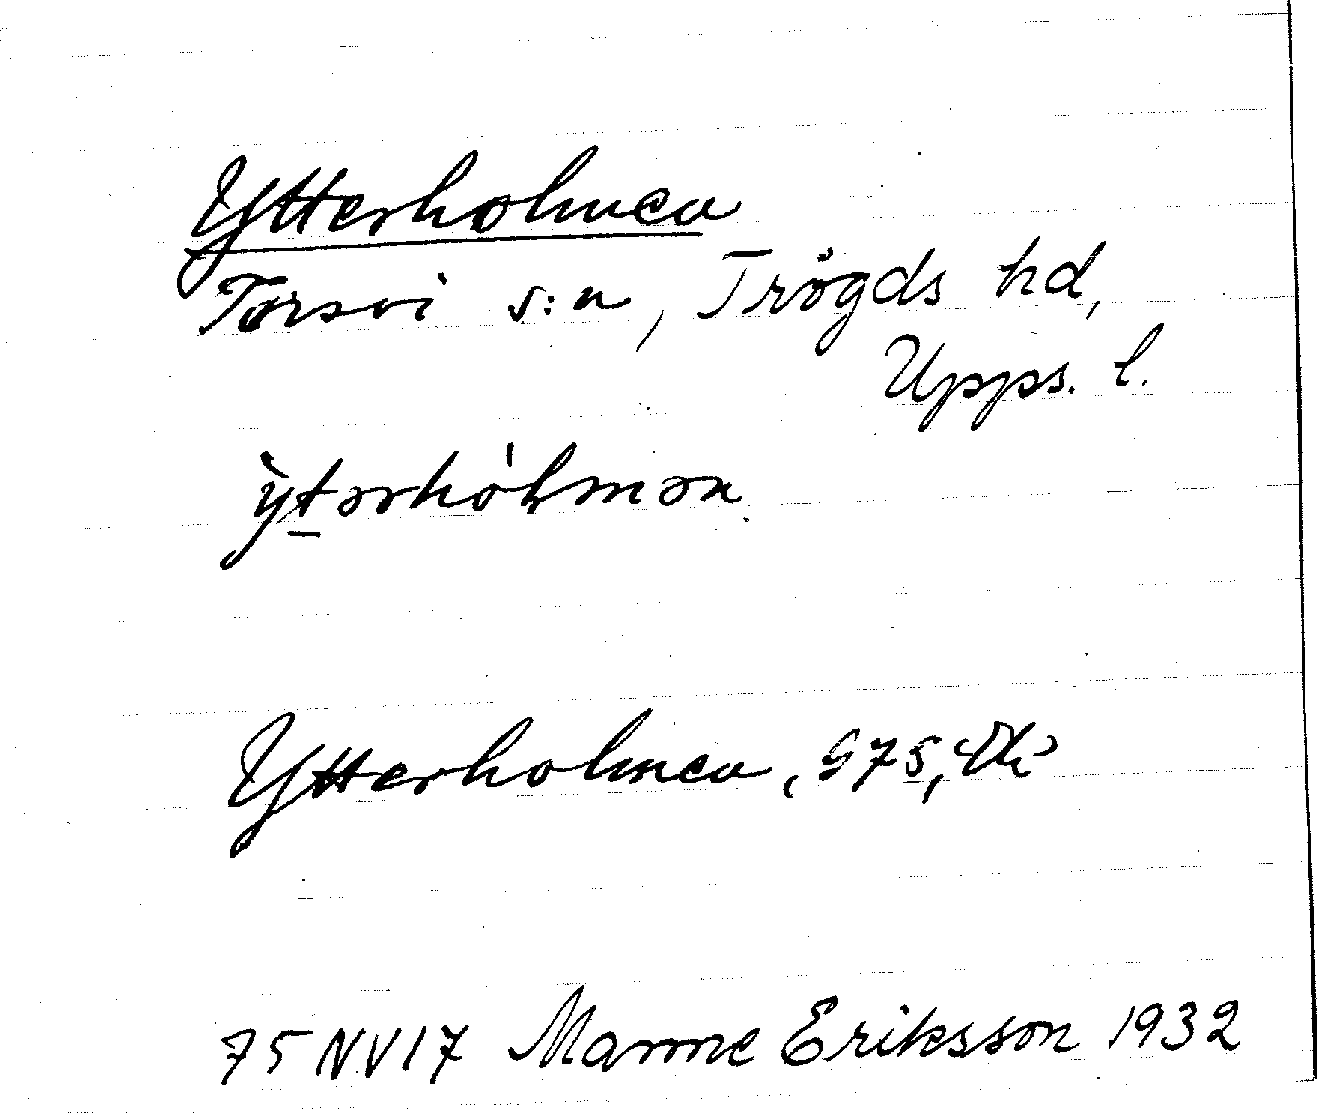 Ytterholmen
Torsvi s:n, Trögds hd,
Upps. l.
ỳtərhólmən
Ytterholmen, G75,
75 NV17 Manne Eriksson 1932